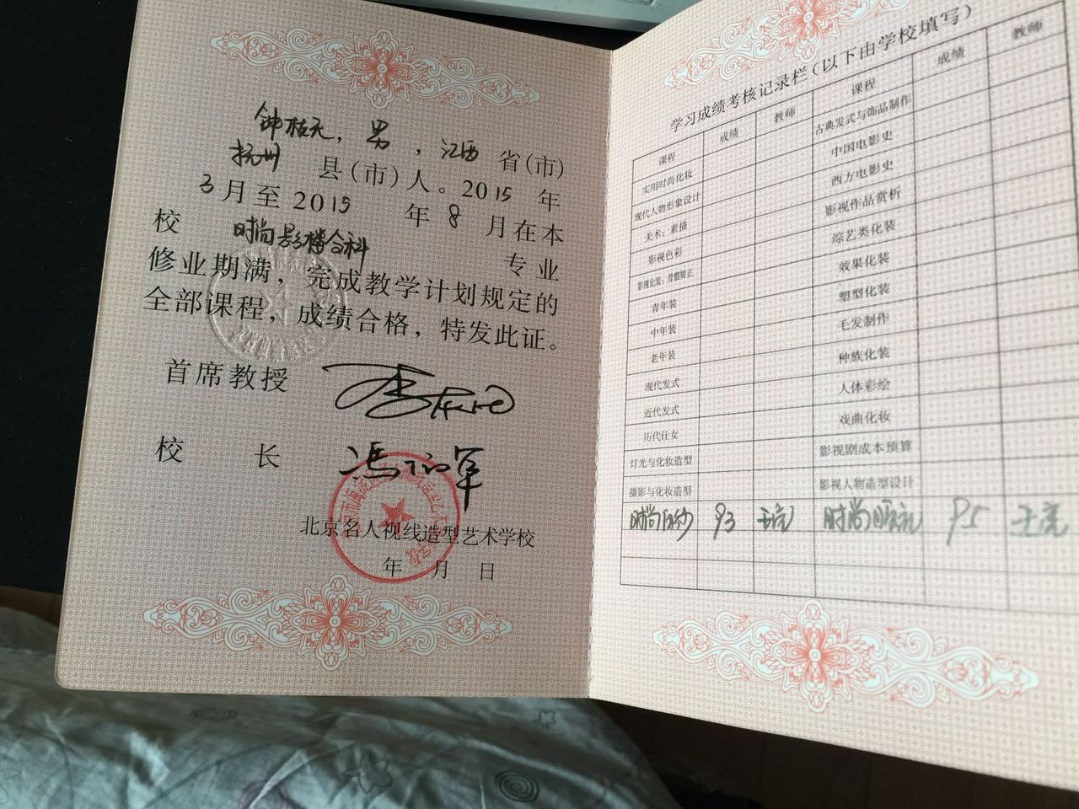 钟 , 男 , 江西 省(市)
抚州 县(市)人。2015 年
3 月至 2015 年 8 月在本
校 时尚影楼全科 专业
修业期满，完成教学计划规定的
全部课程，成绩合格，特发此证。
首席教授
校 长
北京名人视线造型艺术学校
年 月 日
学习成绩考核记录栏(以下由学校填写)
课程 成绩 教师 课程 成绩 教师
实用时尚化妆 古典发式与饰品制作
现代人物形象设计 中国电影史
美术：素描 西方电影史
影视色彩 影视作品赏析
影视化装：骨骼矫正 综艺类化装
青年装 效果化装
中年装 塑型化装
老年装 毛发制作
现代发式 种族化装
近代发式 人体彩绘
历代仕女 戏曲化妆
灯光与化妆造型 影视剧成本预算
摄影与化妆造型 影视人物造型设计
时尚白纱 93 王亮 时尚晚礼 95 王亮